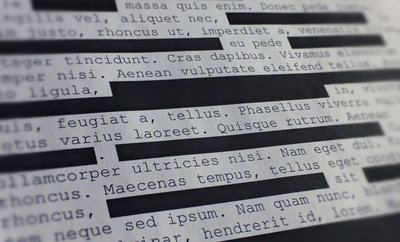 massa quis enim. Donec pede
fringilla vel, aliquet nec,
justo, rhoncus ut, imperdiet a, venenatis
eu pede
Integer tincidunt. Cras dapibus. Vivamus
semper nisi. Aenean vulputate eleifend tellus
leo ligula, in, viverra
quis, feugiat a, tellus. Phasellus viverra
metus varius laoreet. Quisque rutrum. Aenean
.
ullamcorper ultricies nisi. Nam eget dui.
rhoncus. Maecenas tempus, tellus eget
rhoncus, sit
neque sed ipsum. Nam quam nunc,
pulvinar, hendrerit id, lorem